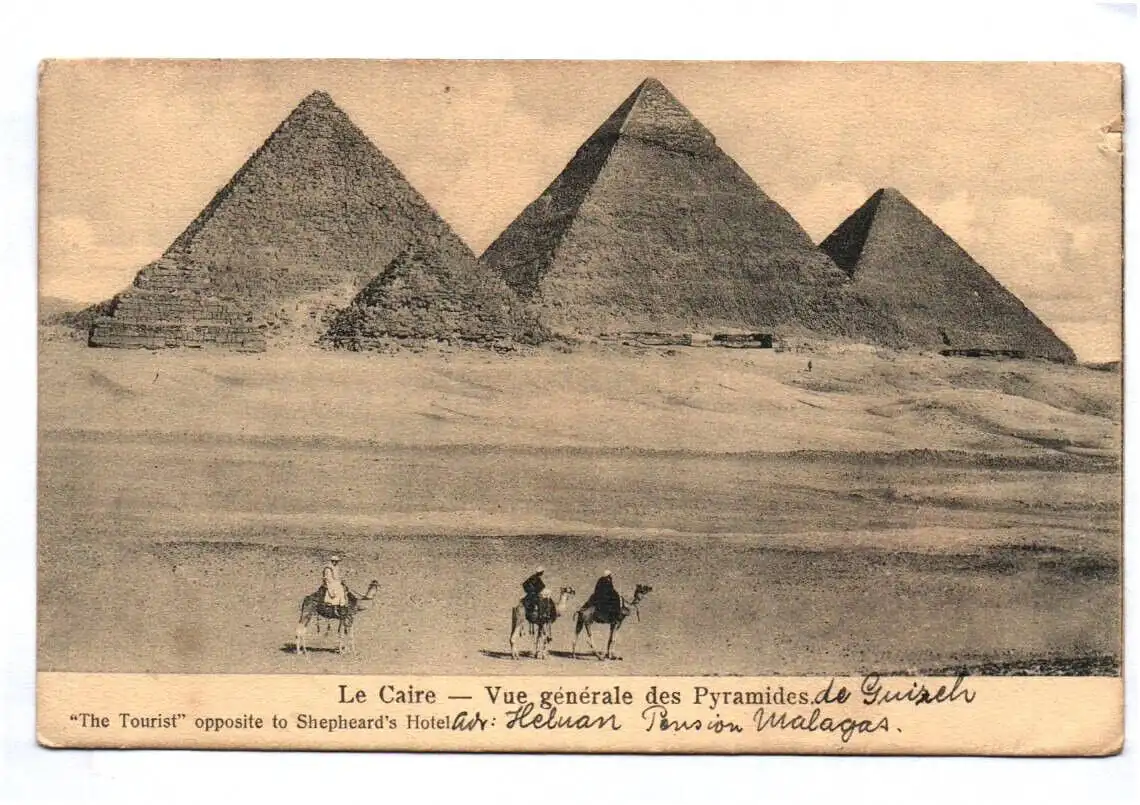 Le Caire — Vue générale des Pyramides. de Guizeh
"The Tourist" opposite to Shepheard's Hotel adr: Heluan Pension Malagas.